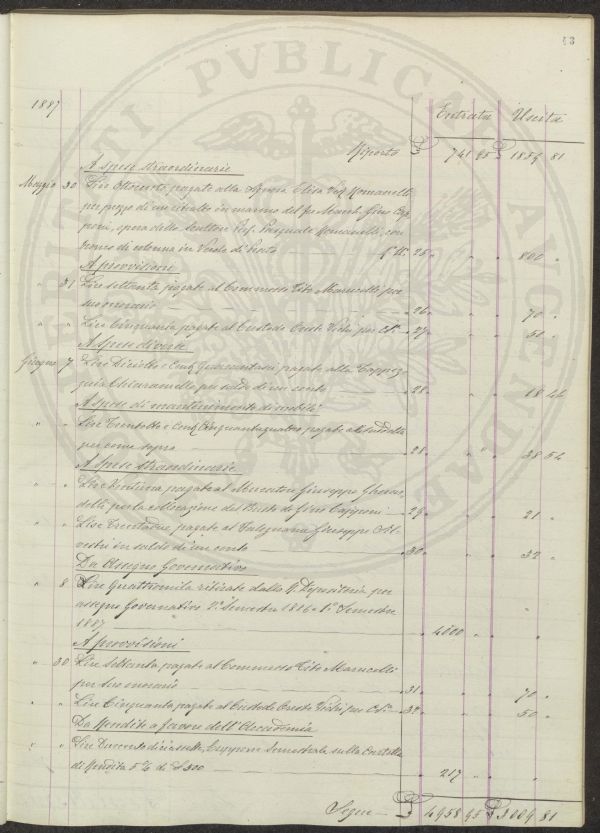 43
1887
Entrata Uscita
Riporto £ 741 95 £ 1859 81
A spese straordinarie
Maggio 30 Lire Ottocento pagate alla Signora Elisa Ved. Romanelli
per prezzo di un ritratto in marmo del fu March. Gino Cap
poni, opera dello Scultore Prof. Pasquale Romanelli, con
tronco di colonna in Verde di Prato N. 25 " " " 800 "
A provvisioni
" 31 Lire settanta pagate al Commesso Tito Marucelli per
suo onorario " 26 " " " 70 "
" " Lire Cinquanta pagate al Custode Oreste per " 27 " " " 50 "
A Spese diverse
Giugno 7 Lire Diciotto e Cent. Quarantasei pagate alla Tappez
zeria Chiaramelli per saldo di un conto " 28 " " " 18 46
A spese di mantenimento di mobili
" " Lire Trentotto e Cent. Cinquantaquattro pagate alla suddetta
per come sopra " 28 " " " 38 54
A Spese straordinarie
" " Lire Ventuna pagate al Muratore Giuseppe
per la collocazione del Busto di Gino Capponi " 29 " " " 21 "
" " Lire Trentadue pagate al Falegname Giuseppe
in saldo di un conto " 30 " " " 32 "
Da Assegno Governativo
" 8 Lire Quattromila ritirate dalla R. Depositeria per
assegno Governativo 2º Semestre 1886 e 1º Semestre
1887 " 4000 " " "
A provvisioni
" 30 Lire settanta pagate al Commesso Tito Marucelli
per suo onorario " 31 " " " 70 "
" " Lire Cinquanta pagate al Custode Oreste per " 32 " " " 50 "
Da Rendite a favore dell'Accademia
" " Lire Duecentodiciasette, Cuppone Semestrale sulla Cartella
di Rendita 5% di £ 500 " 217 " " "
Segue £ 4958 95 £ 3009 81